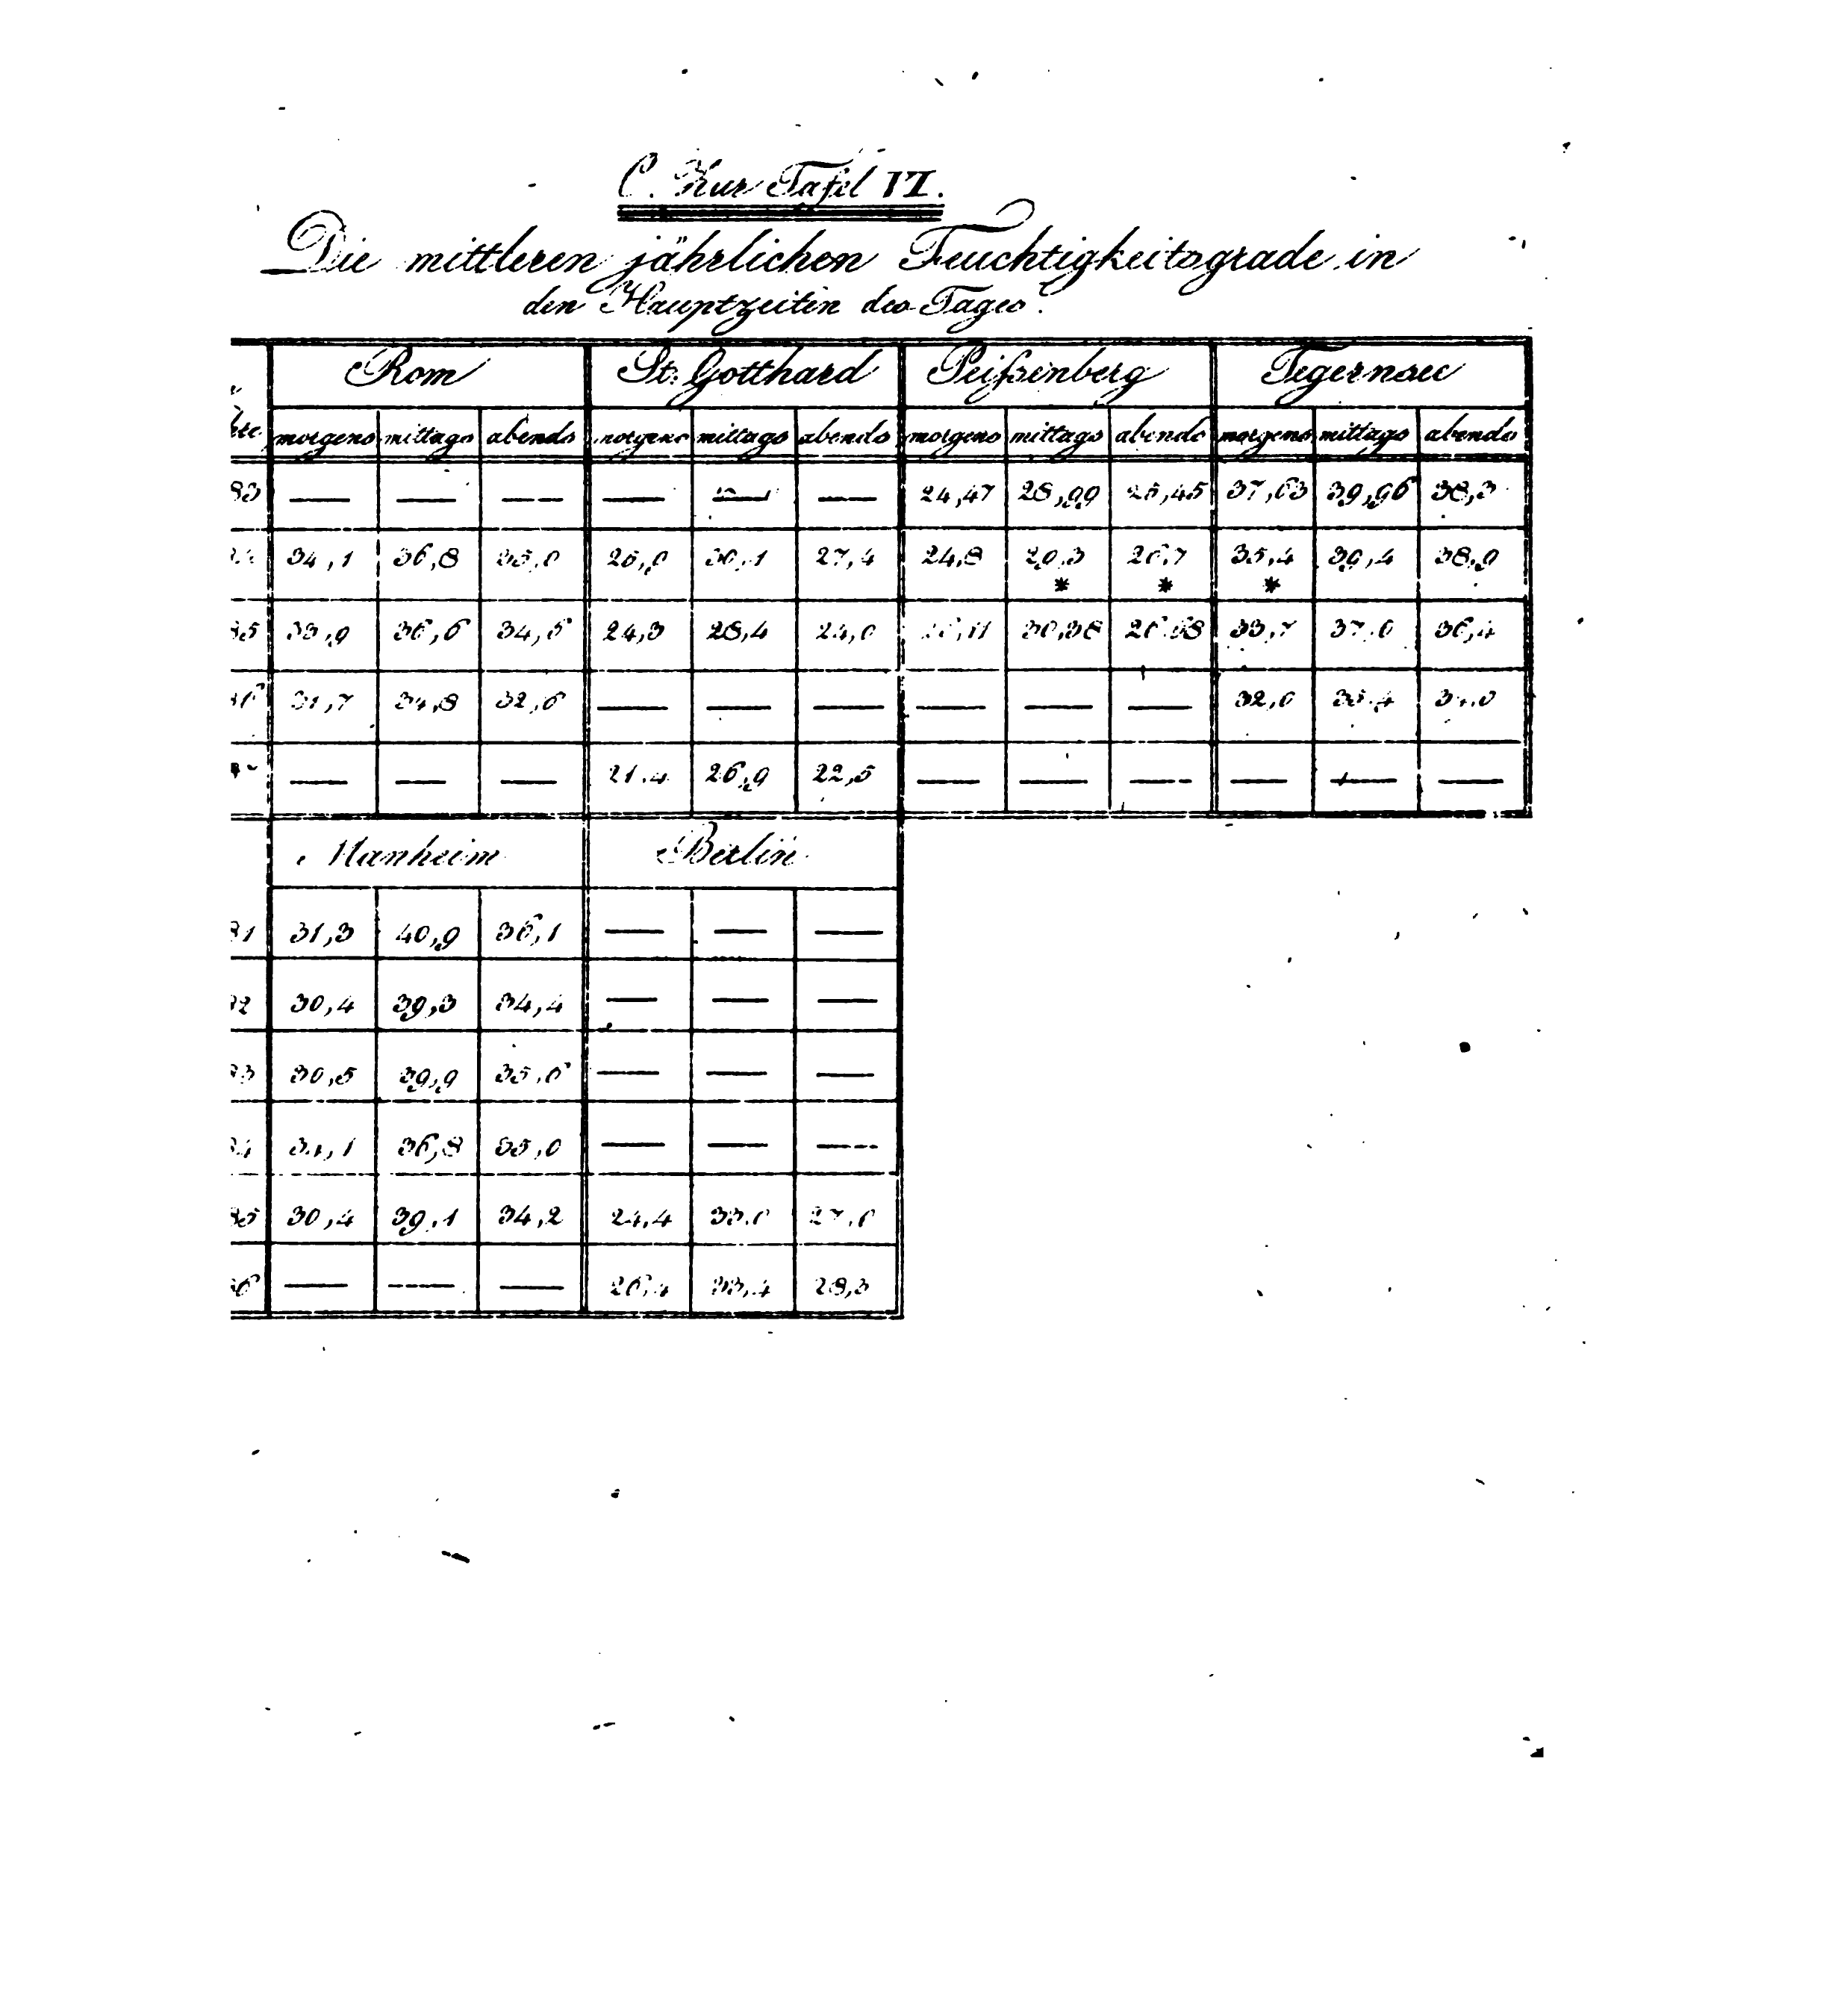 C. Zur Tafel VI.
Die mittleren jährlichen Feuchtigkeitsgrade in
den Hauptzeiten des Tages.
Rom St. Gotthard Peißenberg Tegernsee
morgens mittags abends morgens mittags abends morgens mittags abends morgens mittags abends
83 — — — — — — 24,47 28,99 25,45 37,63 39,96 38,3
34,1 36,8 35,0 25,9 30,1 27,4 24,8 29,3 * 26,7 * 35,4 * 39,4 38,9
85 33,9 36,6 34,5 24,3 28,4 24,0 30,38 26,68 33,7 37,0 36,4
31,7 34,8 32,6 — — — — — — 32,0 35,4 34,0
— — — 21,4 26,9 22,5 — — — — — —
Manheim Berlin
81 31,3 40,9 36,1 — — —
2 30,4 39,3 34,4 — — —
3 30,5 39,9 35,6 — — —
4 34,1 36,8 35,0 — — —
85 30,4 39,1 34,2 24,4 33,0 27,0
6 — — — 26,4 33,4 28,3